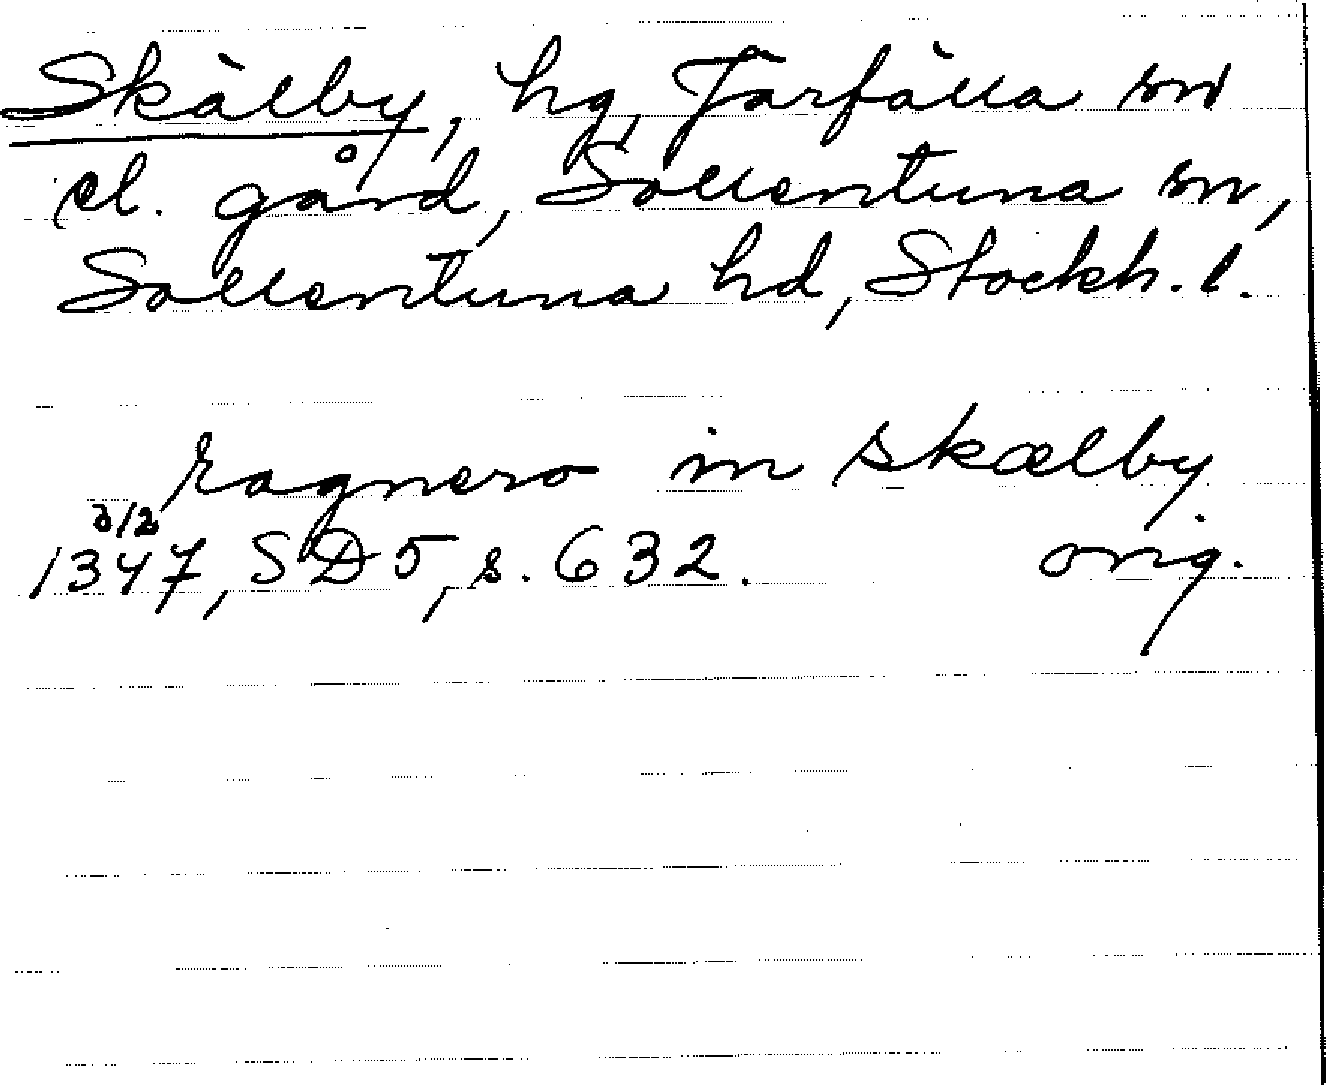 Skälby, hg, Järfälla sn
el. gård, Sollentuna sn,
Sollentuna hd, Stockh. l.
ragnero in skælby
3/2
1347, SD 5, s. 632. orig.